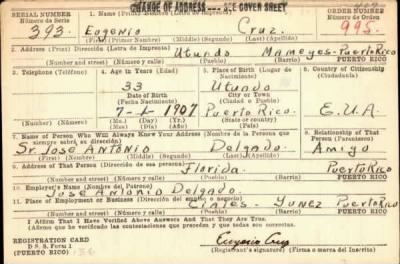 CHANGE OF ADDRESS --- SEE COVER SHEET
SERIAL NUMBER 1. Name (Print) Nombre (Letra de Imprenta) ORDER NUMBER
Número de Serie Número de Orden
393. Eugenio Cruz. 995.
(First) (Primer Nombre) (Middle) (Segundo) (Last) (Apellido)
2. Address (Print) Dirección (Letra de Imprenta) Utuado Mameyes-Puerto Rico
Number and street) (Número y calle) (Pueblo) (Barrio) PUERTO RICO
3. Telephone (Teléfono) 4. Age in Years (Edad) 5. Place of Birth (Lugar de Nacimiento) 6. Country of Citizenship (Ciudadanía)
33 Utuado
Date of Birth City or Town
(Fecha Nacimiento) (Ciudad o Pueblo)
7-1-1907 Puerto Rico. E.U.A.
(Mo.) (Day) (Yr.) (State or country)
(Mes) (Día) (Año) (País)
7. Name of Person Who Will Always Know Your Address (Nombre de la Persona que siempre sabrá su dirección) 8. Relationship of That Person (Parentesco)
Sr. José Antonio Delgado. Amigo
(First) (Nombre) (Middle) (Segundo) (Last) (Apellido)
9. Address of That Person (Dirección de esa persona)
Florida. Puerto Rico
Number and street) (Número y calle) (Pueblo) (Barrio) PUERTO RICO
10. Employer's Name (Nombre del Patrono)
José Antonio Delgado.
11. Place of Employment or Business (Dirección del empleo o negocio)
Ciales- Yunez Puerto Rico
Number and street) (Número y calle) (Pueblo) (Barrio) PUERTO RICO
I Affirm That I Have Verified Above Answers And That They Are True.
Afirmo que he verificado las contestaciones que preceden y que todas son correctas.
REGISTRATION CARD
D. S. S. Form 1
PUERTO RICO
Eugenio Cruz
(Registrant's signature) (Firma o marca del Inscrito)